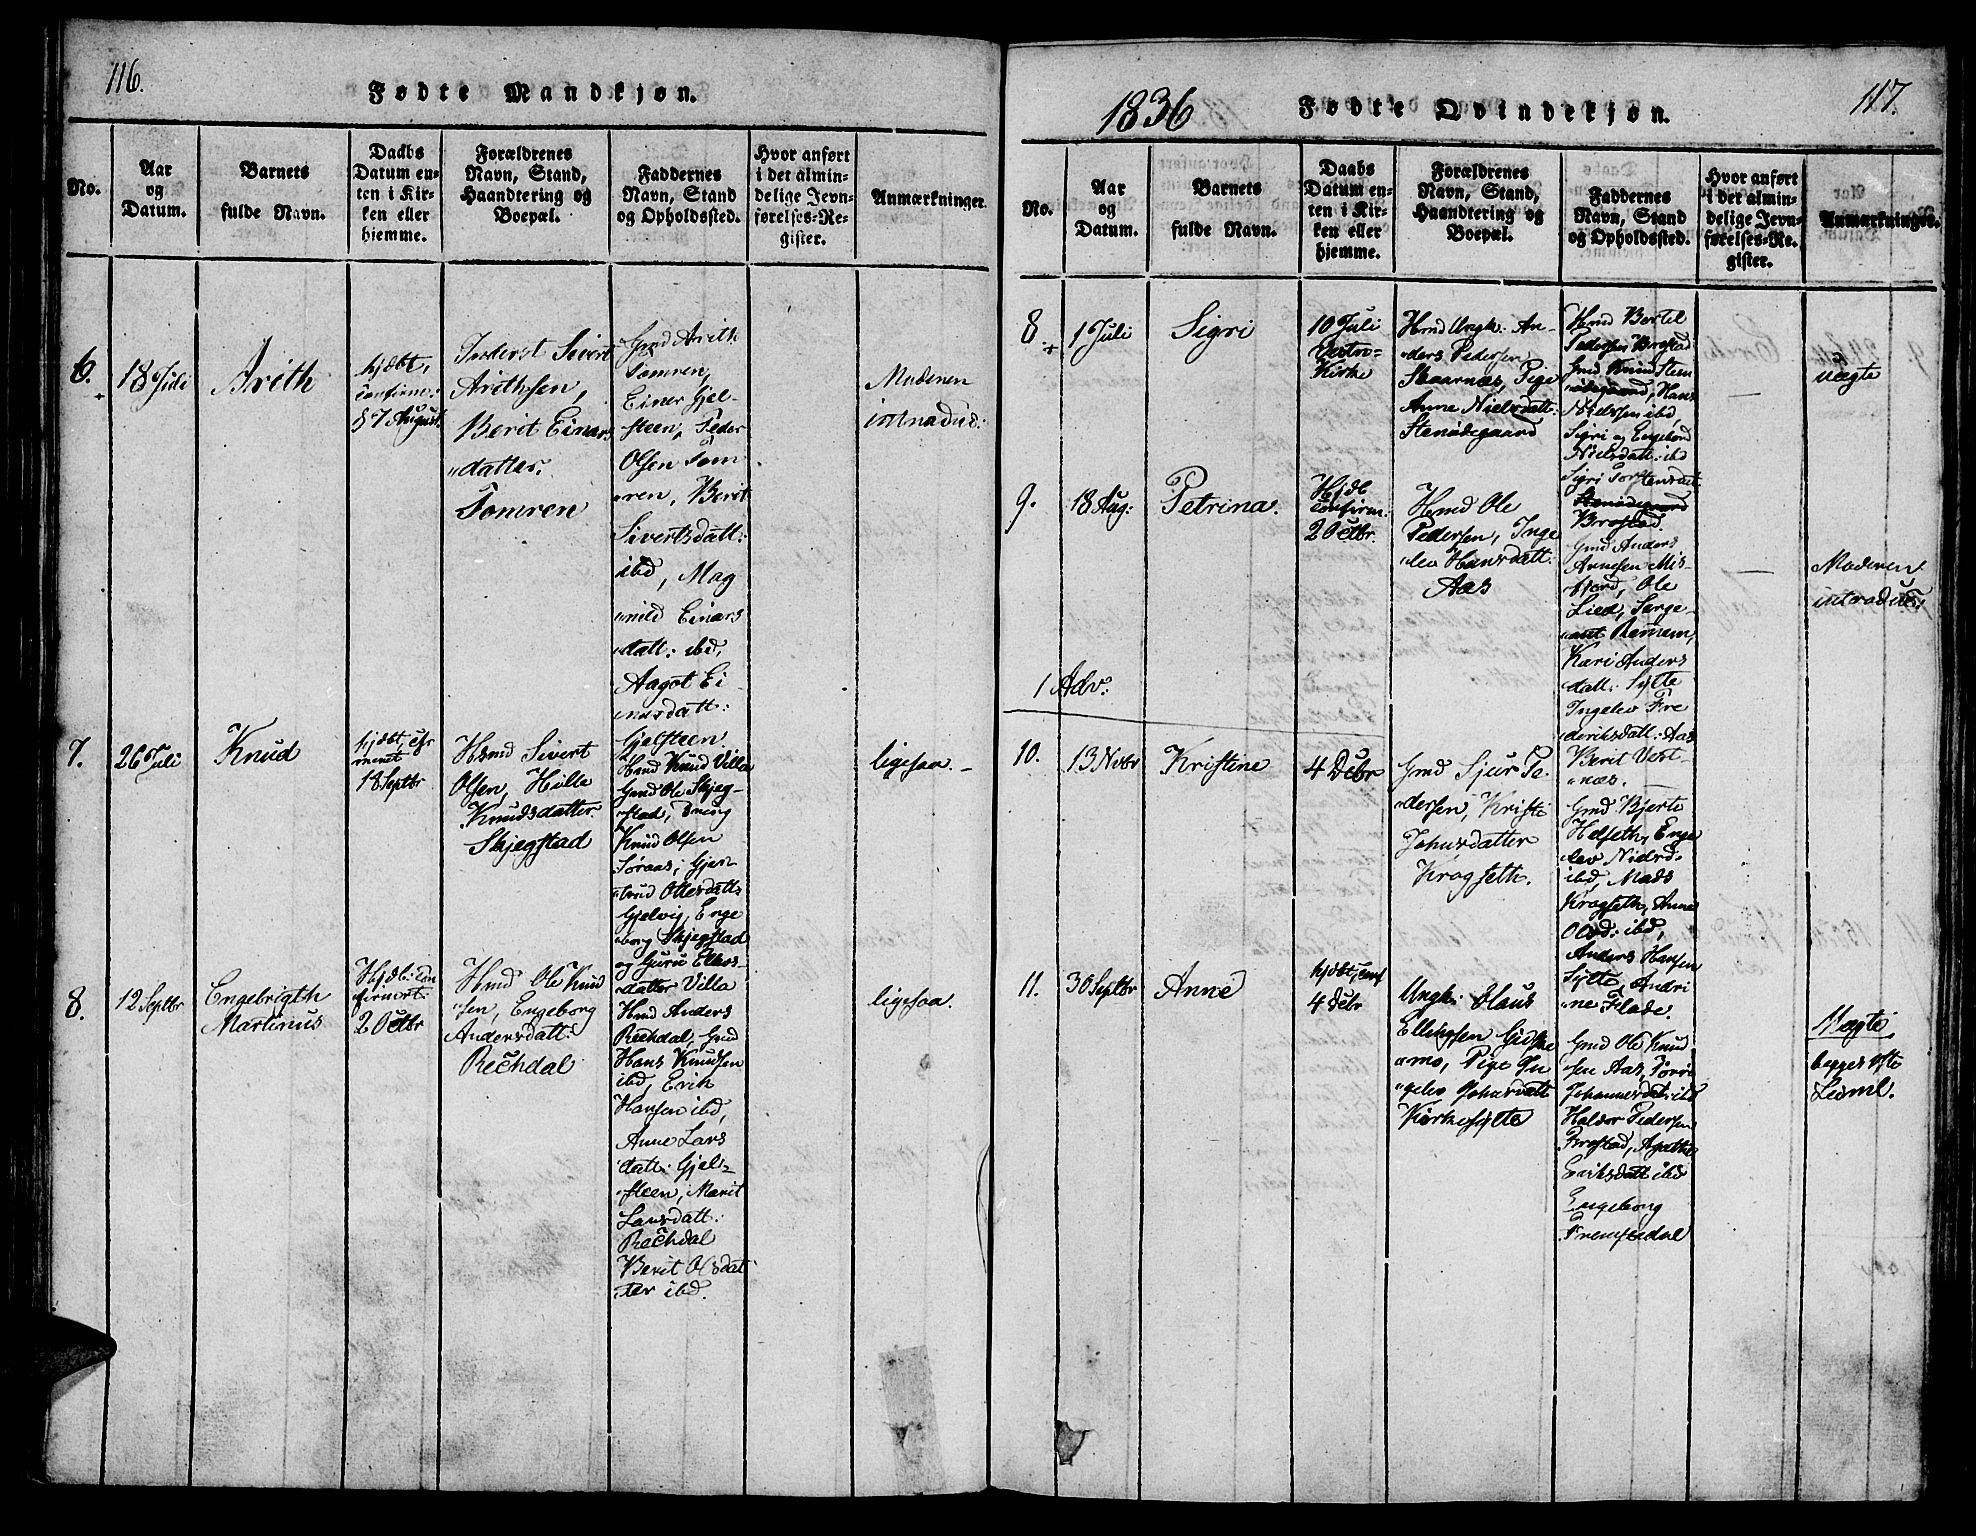 116.
Fødte Mandkjøn.
No.
Aar
og
Datum.
Barnets
fulde Navn.
Daabs
Datum en-
ten i Kir-
ken eller
hjemme.
Forældrenes
Navn, Stand,
Haandtering og
Boepæl.
Faddernes
Navn, Stand
og Opholdssted.
Hvor anført
i det almin-
delige Jevn-
førelses-Re-
gister.
Anmærkninger
6.
18 Juli
Arith
hjdbt,
confirm:
d 7 August
Sivert
Arithsen,
Berit Einars
"datter.
Tomren
Gmd Arith
Tomren,
Einer Gjel-
steen, Peder
Olsen Tom
"ren, Berit
Sivertsdatt:
ibd, Mag
"nild Einars
"datt: ibd,
Aagot Ei
"narsdatt:
Gjelsteen
Moderen
introduc:
7.
26 Juli
Knud
18 Septbr
Hsmd Sivert
Olsen, Hille
Knudsdatter
Skjegstad
Hmd Knud Villa
Gmd Ole Skjeg-
stad, Dreng
Knud Olsen
Soraas, Gjer
"trud Ottersdatt:
Gjelvig, Enge
"borg Skjegstad
og Guru
"datter Villa
ligesaa.
8.
12 Septbr
Engebrigth
Martinus
Hjdb: con
firmert
2 Octbr
Hmd Ole Knud
"sen, Engeborg
Andersdatt:
Rechdal
Hmd Anders
Rechdal, Gmd
Hans Knudsen
ibd, Erik
Hansen ibd,
Anne Lars
"datt: Gjel-
"steen, Marit
Larsdatt:
Rechdal
Berit Olsdat
"ter ibd.
ligesaa.
1836
Fødte Qvindekjøn.
117.
No.
Aar
og
Datum.
Barnets
fulde Navn.
Daabs
Datum en-
ten i Kir-
ken eller
hjemme.
Forældrenes
Navn, Stand,
Haandtering og
Boepæl.
Faddernes
Navn, Stand
og Opholdssted.
Hvor anført
i det almin-
delige Jevn-
førelses-Re-
gister.
Anmærkninger.
8.
1 Juli
Sigri
10 Juli
Kirke
Hmd Ungk: An-
"ders Pedersen
Skaarnæs, Pige
Anne Nielsdatt:
Stenødegaard
Hmd Bertel
Pedersen Brøstad
Gmd Knud Sten
"ødegaard, Hans
Nielsen ibd,
Sigri og Engeborg
Nielsdatt: ibd
Sigri Torstensdat
Stenødegaard
Brøstad
uægte
9.
18 Aug:
Petrina.
Hjdb
confirm
2 Octbr.
Hsmd Ole
Pedersen, Inge
"lev Hansdatt:
Aas
Gmd Anders
Arnesen Mis-
fjord, Ole
Lied, Serge-
"ant
Kari Anders
datt: Sylte
Ingelev Fre
deriksdatt: Aas
Berit Vest-
"næs.
Moderen
introduc:
1 Adv:
10.
13 Novbr
Kristine
4 Dcbr
Gmd Sjur Pe-
"dersen, Kristi
Johnsdatter
Krogseth.
Gmd Bjerte
Helseth, Enge
"lev Nielsd:
ibd, Mads
Krogseth, Anne
Olsd: ibd,
Anders Hansen
Sylte, Andri
"ne Flade.
11.
30 Septbr
Anne
hjdbt, conf
4 Dcbr
Ungk: Olaus
Ellingsen Gidske
"mo, Pige In
"gelev Johnsdatt
Kirkesylte
Gmd Ole Knud
"sen Aas,
Johannesdat: ibd
Haldor Pedersen
Brøstad, Agathe
Eriksdatt ibd
Engeborg
Fremstedal
Uægte
begges 1ste
Leiml.